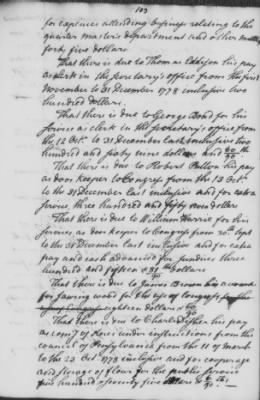 103
for expences attending business relating to the
quarter masters department and other matters
forty five dollars
That there is due to Thomas Edison his pay
as clerk in the secretary's office from the first
November to 31 December 1778 inclusive two
hundred dollars.
That there is due to George Bond for his
service as clerk in the secretary's office from
the 12 Octr to 31 december last inclusive two
hundred and sixty six dollars and 60/90
That there is due to Robert Patton his pay
as door keeper to Congress from the 13 Octr
to the 31 december last inclusive and for extra
service, three hundred and fifty dollars
That there is due to William Hurrie for his
service as door keeper to Congress from 20th Sept
to the 31 December last inclusive and for extra
pay and cash advanced for sundries three
hundred and fifteen 31/90 dollars
That there is due to James Brown his account
for sawing wood for the use of Congress
eighteen dollars &
That there is due to Charles Fisher his pay
as of under instructions from the
council of Pensylvania from the 11 of march
to the 23 Octr 1778 inclusive and for cooperage
and storage of flour for the public service
five hundred & seventy five dollars &